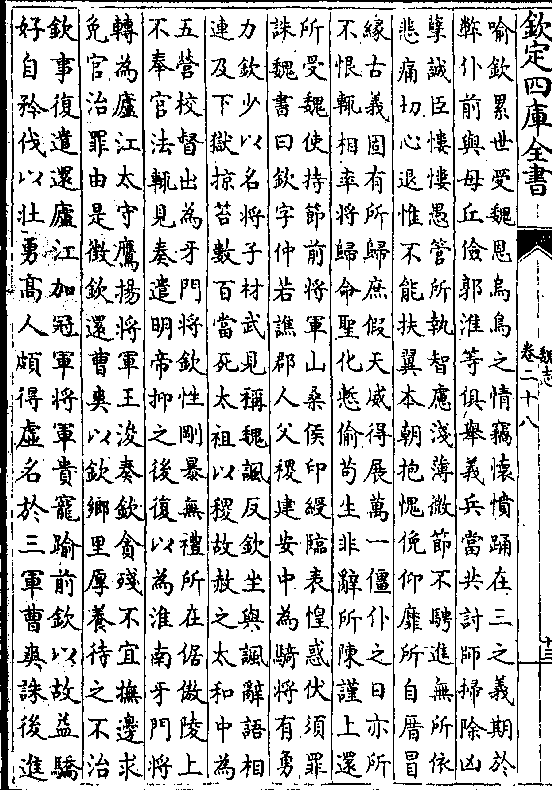 欽定四庫全書
魏志
卷二十八
十三
喻欽累世受魏恩烏鳥之情竊懷憤踊在三之義期於
弊仆前與母丘儉郭淮等俱舉義兵當共討師掃除凶
孽誠臣慺慺愚管所執智慮淺薄微節不騁進無所依
悲痛切心退惟不能扶翼本朝抱愧俛仰靡所自厝冒
縁古義固有所歸庶假天威得展萬一僵仆之日亦所
不恨輒相率將歸命聖化慙偷苟生非辭所陳謹上還
所受魏使持節前將軍山桑侯印綬臨表惶惑伏須罪
誅魏書曰欽字仲若譙郡人父稷建安中為騎將有勇
力欽少以名將子材武見稱魏諷反欽坐與諷辭語相
連及下獄掠笞數百當死太祖以稷故赦之太和中為
五營校督出為牙門將欽性剛暴無禮所在倨傲陵上
不奉官法輒見奏遣明帝抑之後復以為淮南牙門將
轉為廬江太守鷹揚將軍王浚奏欽貪殘不宜撫邊求
免官治罪由是徵欽還曹爽以欽鄉里厚養待之不治
欽事復遣還廬江加冠軍將軍貴寵踰前欽以故益驕
好自矜伐以壯勇髙人頗得虛名於三軍曹爽誅後進